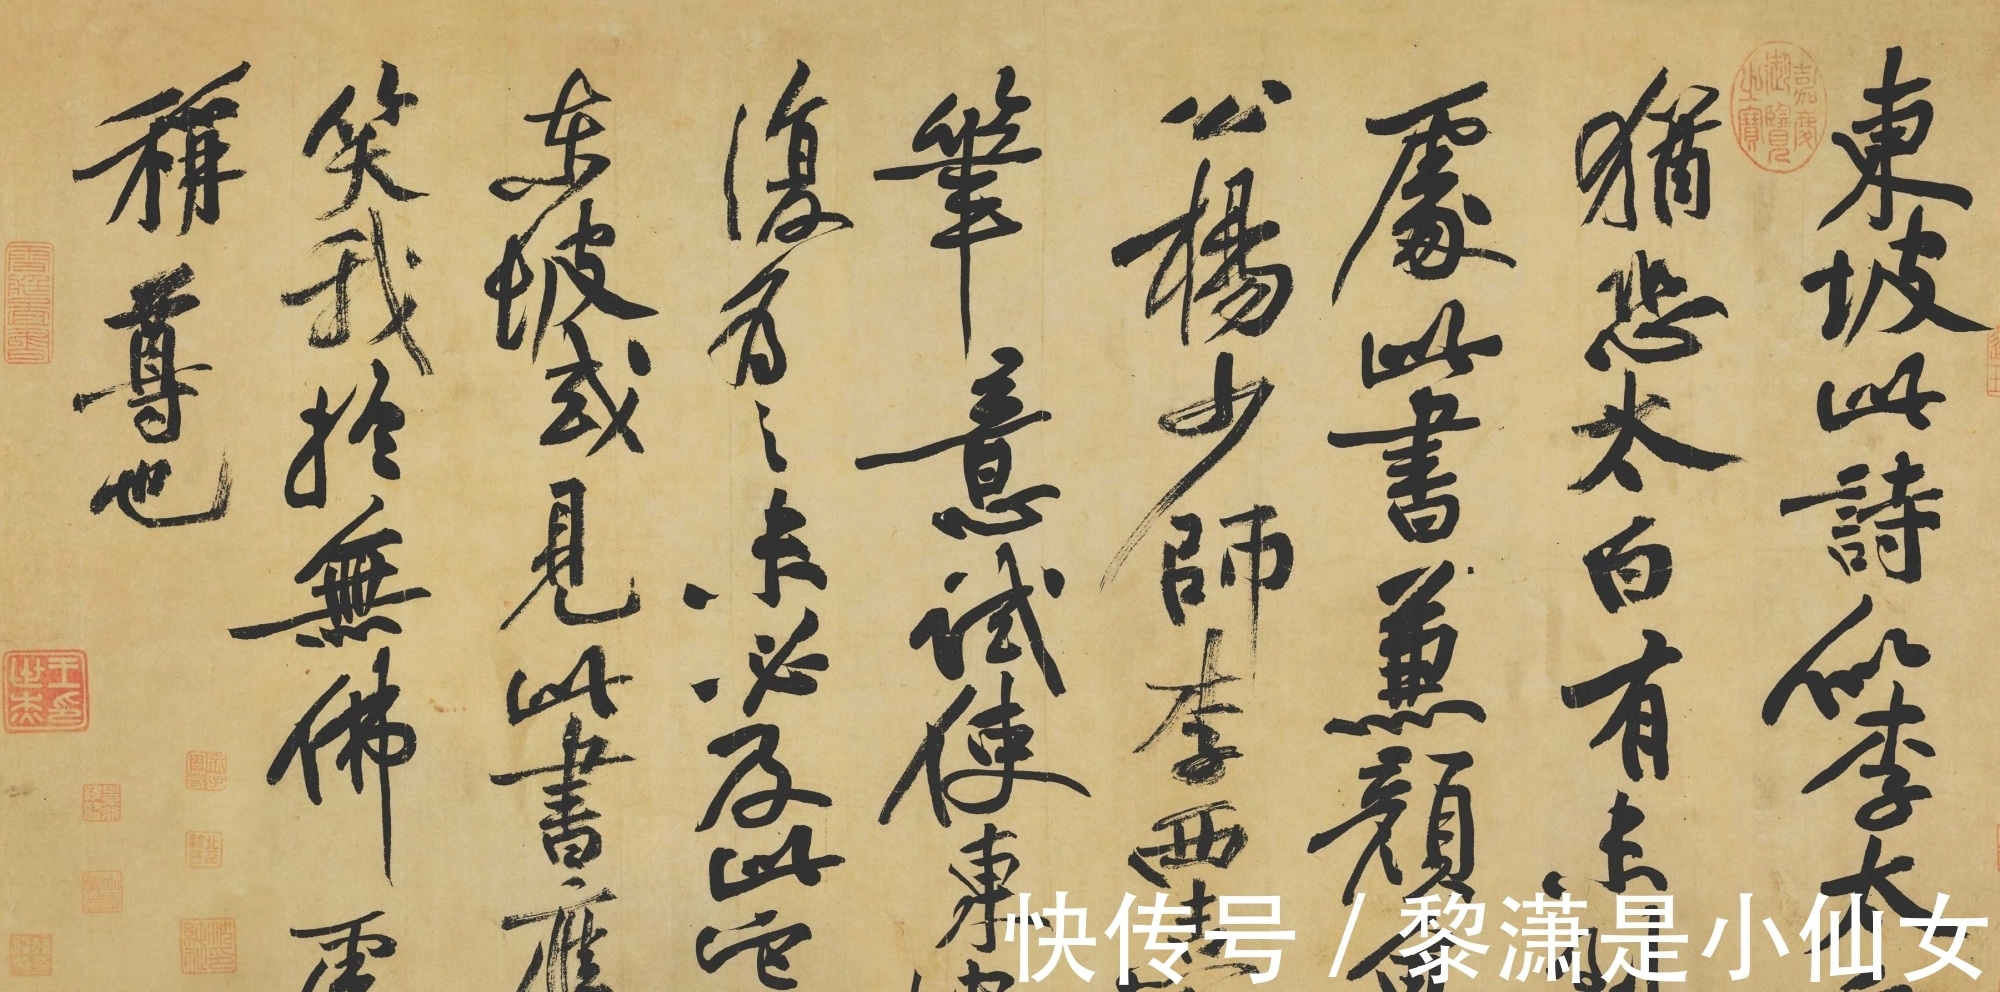 東坡此詩似李太
猶恐太白有未
處此書兼顏
公楊少師李西
筆意試使東
復為之未必及此它
東坡或見此書應
笑我於無佛處
稱尊也
嘉慶御覽之寶
快传号 / 黎潇是小仙女